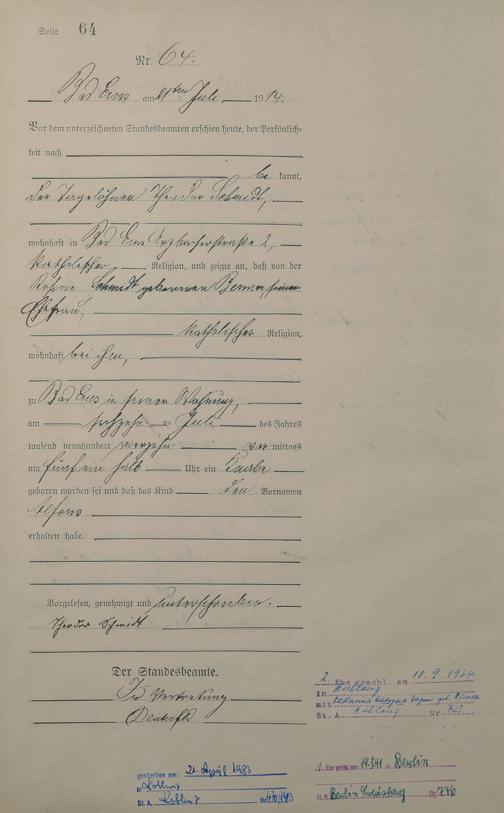 Seite 64
Nr. 64.
Bad Ems am 21ten Juli 1914.
Vor dem unterzeichneten Standesbeamten erschien heute, der Persönlich-
keit nach
be kannt,
der Tagelöhner Theodor Schmidt,
wohnhaft in Bad Ems Arzbacherstraße 2,
katholischer Religion, und zeigte an, daß von der
Schmidt geborenen seiner
Ehefrau,
katholischer Religion,
wohnhaft bei ihm,
zu Bad Ems in seiner Wohnung,
am sechzehn ten Juli des Jahres
tausend neunhundert vierzehn vor mittags
um fünf ein halb Uhr ein Knabe
geboren worden sei und daß das Kind den Vornamen
Alfons
erhalten habe.
Vorgelesen, genehmigt und unterschrieben.
Theodor Schmidt
Der Standesbeamte.
In Vertretung
2. Ehe geschl. am 18.9.1964
in Koblenz
mit
St. A. Koblenz Nr.
1. Ehe geschl. am in Berlin
St. A. Berlin Nr. 776
gestorben am: 21. April 1983
in Koblenz
St. A. Koblenz